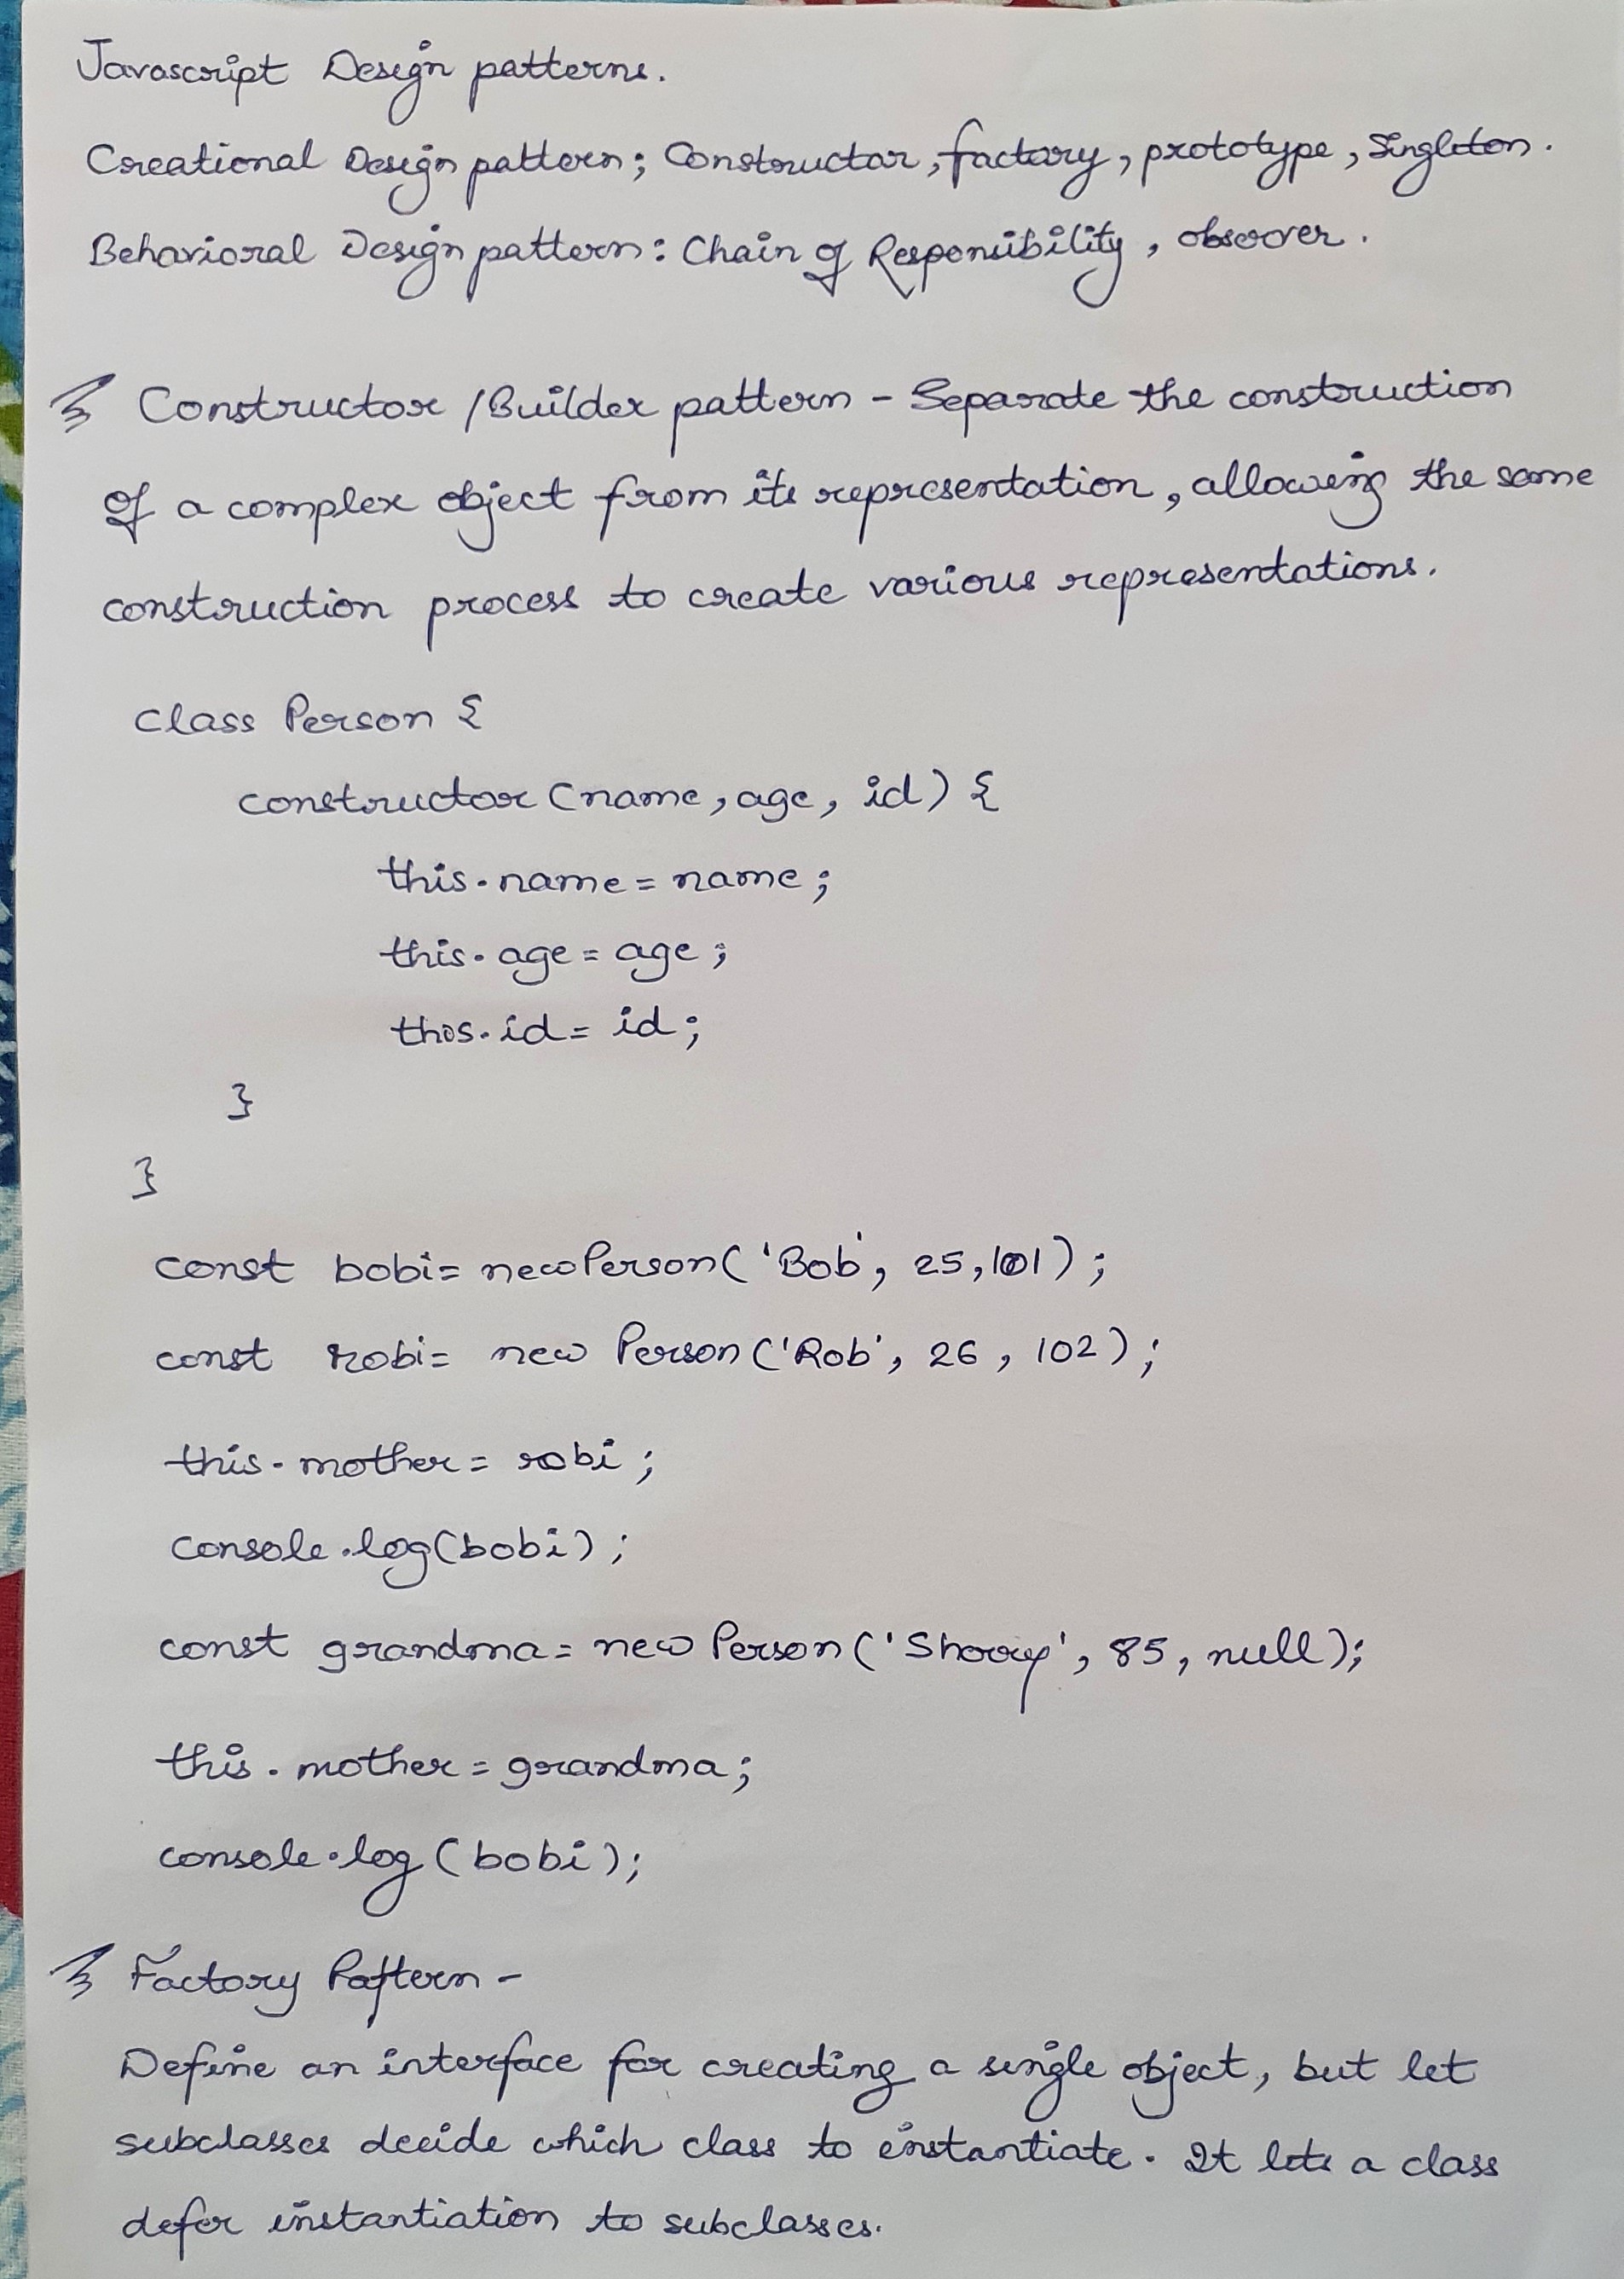 Javascript Design patterns.
Creational Design pattern; Constructor, factory, prototype, Singleton.
Behavioral Design pattern: Chain of Responsibility, observer.
Constructor / Builder pattern - Separate the construction
of a complex object from its representation, allowing the same
construction process to create various representations.
class Person {
constructor (name, age, id) {
this.name = name;
this.age = age;
this.id = id;
}
}
const bobi = new Person( 'Bob', 25, 101) ;
const robi = new Person ('Rob', 26, 102) ;
this.mother = robi ;
console.log(bobi) ;
const grandma = new Person (' ', 85, null);
this.mother = grandma;
console.log (bobi);
Factory Pattern -
Define an interface for creating a single object, but let
subclasses decide which class to instantiate. It lets a class
defer instantiation to subclasses.